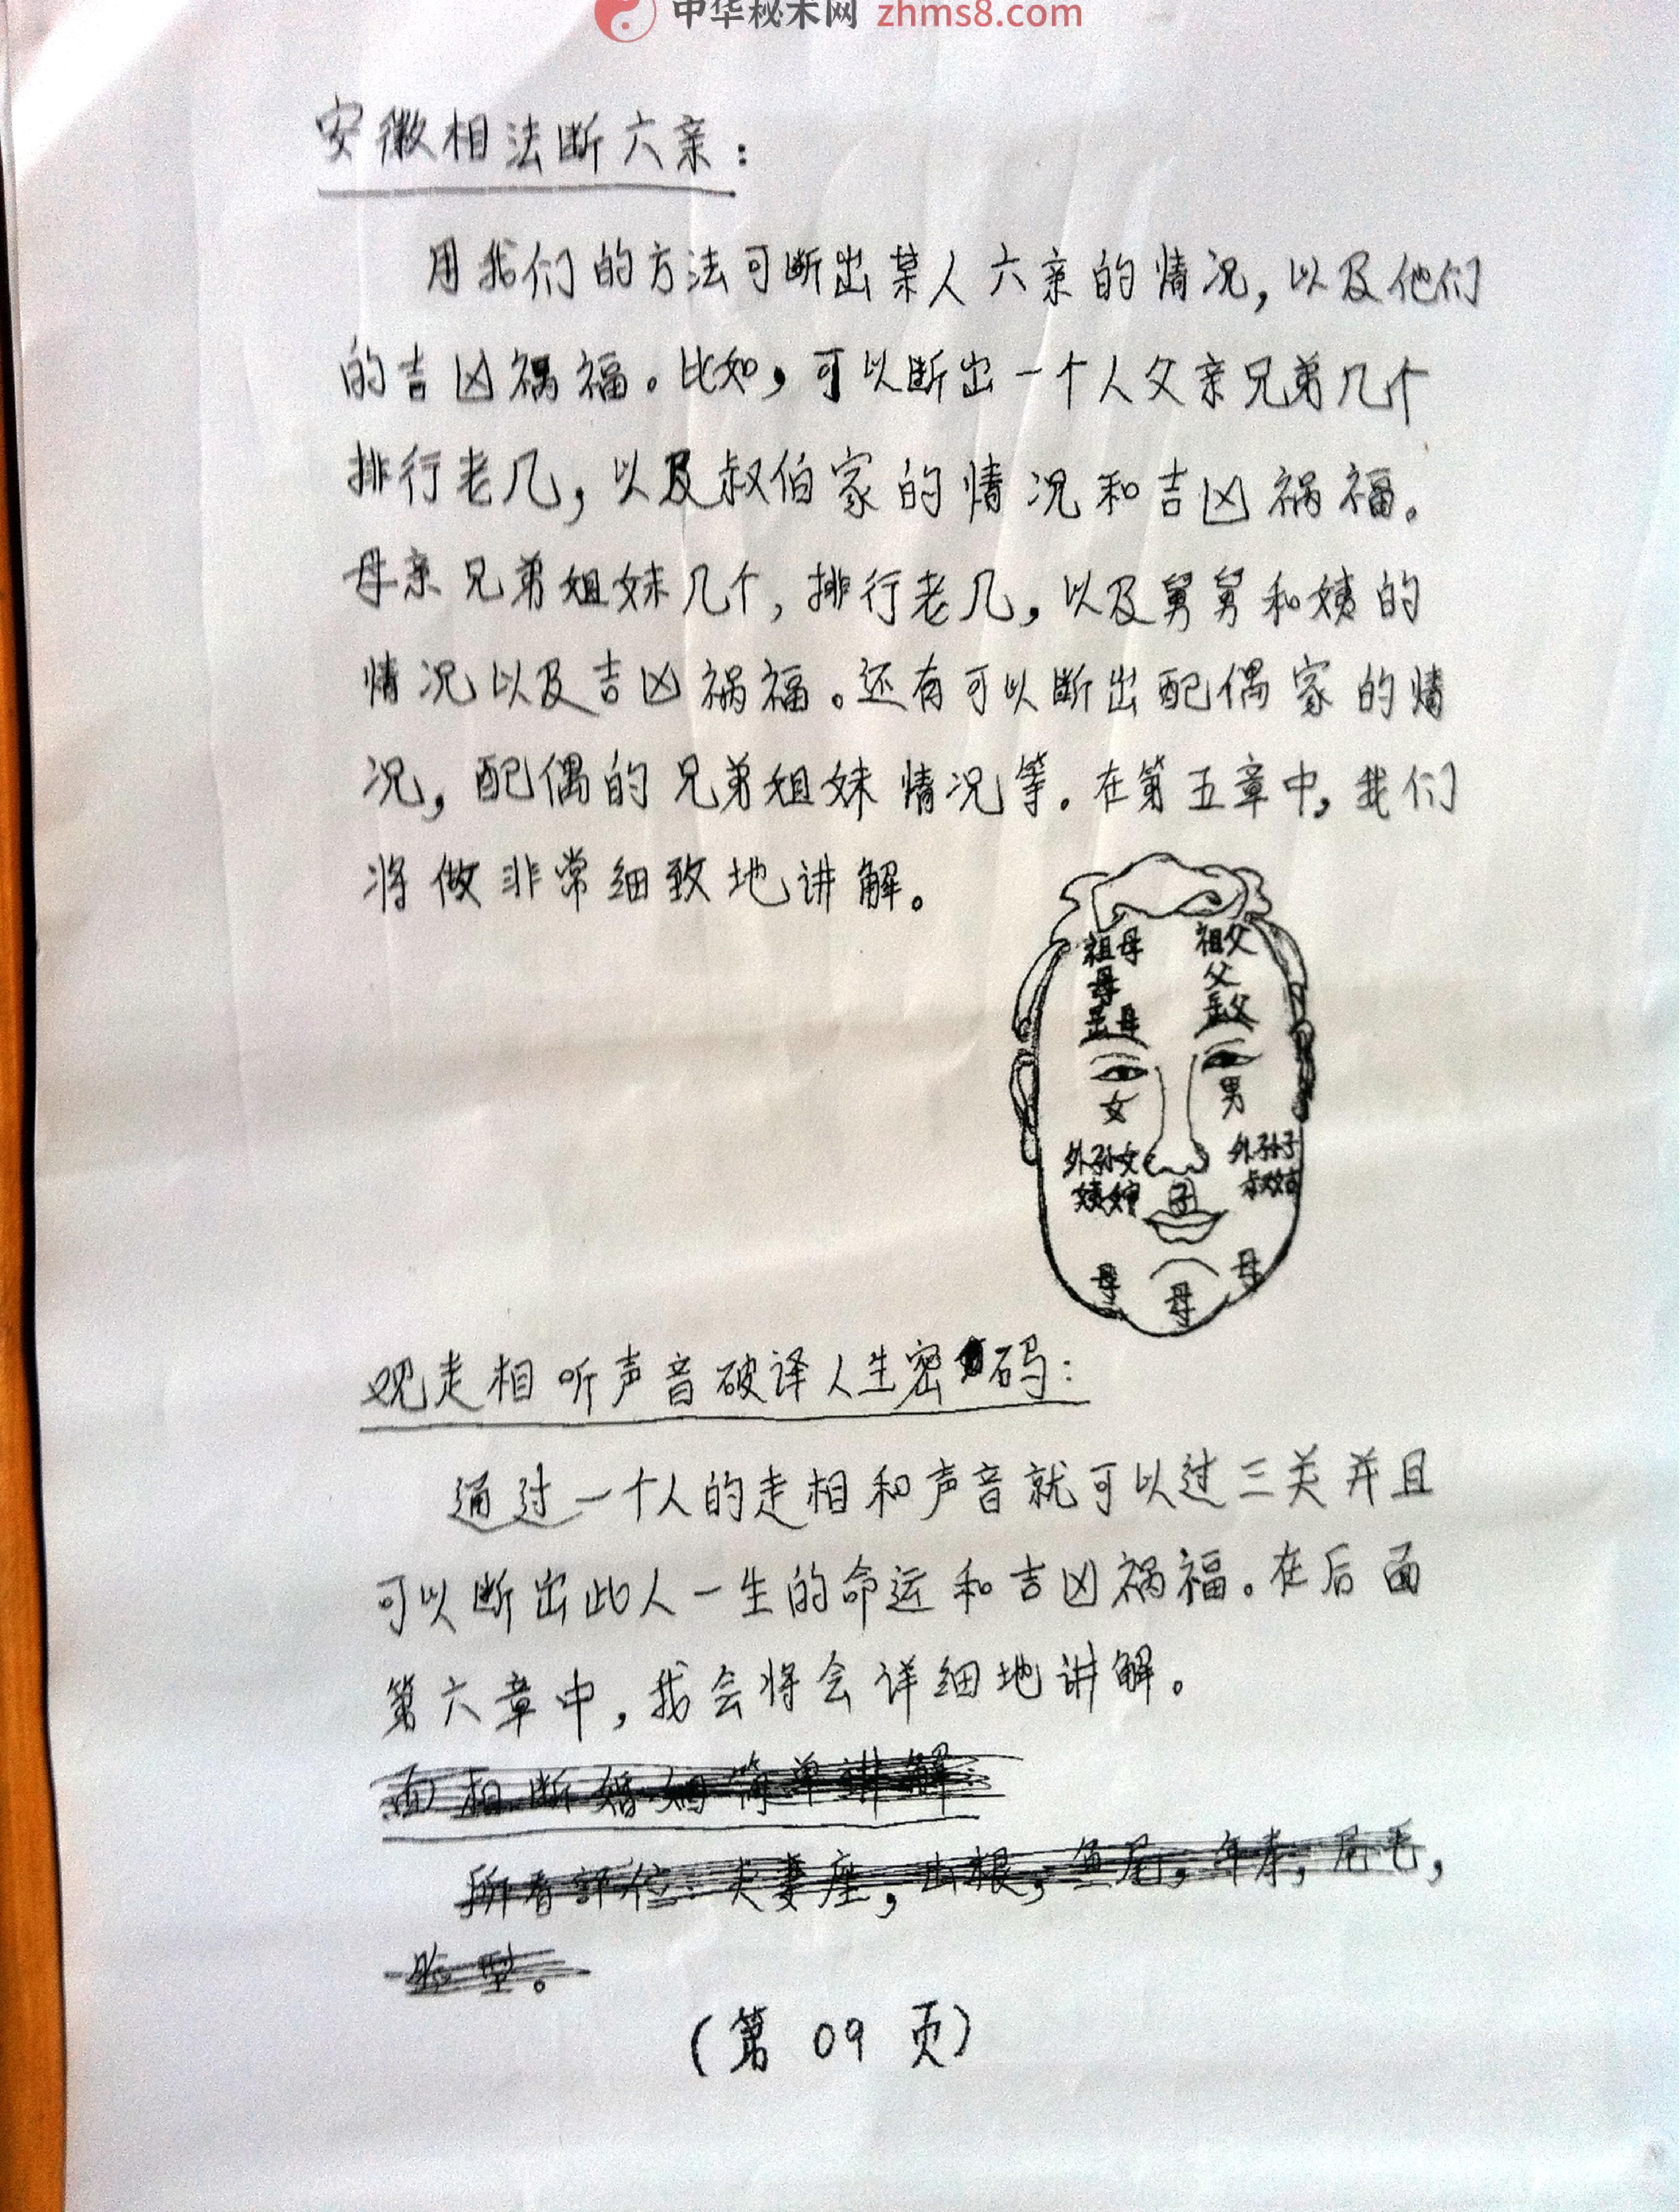 中华秘术网 zhms8.com
安徽相法断六亲：
用我们的方法可断出某人六亲的情况，以及他们
的吉凶祸福。比如，可以断出一个人父亲兄弟几个
排行老几，以及叔伯家的情况和吉凶祸福。
母亲兄弟姐妹几个，排行老几，以及舅舅和姨的
情况以及吉凶祸福。还有可以断出配偶家的情
况，配偶的兄弟姐妹情况等。在第五章中，我们
将做非常细致地讲解。
祖母 祖父
母 父
母 父
女 男
外孙女 外孙子
子 叔姑
母 母 母
观走相听声音破译人生密码：
通过一个人的走相和声音就可以过三关并且
可以断出此人一生的命运和吉凶祸福。在后面
第六章中，我会将会详细地讲解。
面相断婚姻简单讲解：
所看部位：夫妻座，山根，鱼尾，年寿，眉毛，
脸型。
（第 09 页）